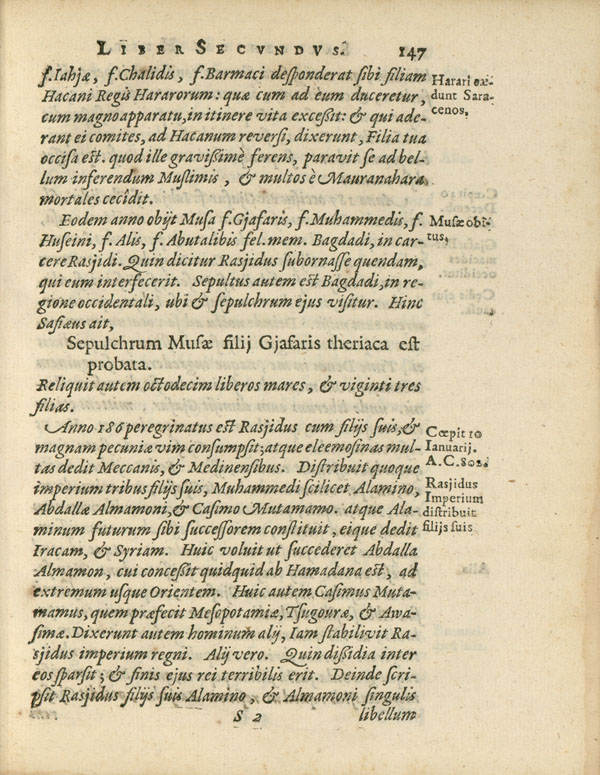 LIBER SECVNDVS. 147
f. Iahjæ, f. Chalidis, f. Barmaci desponderat sibi filiam
Hacani Regis Hararorum: quæ cum ad eum duceretur,
cum magno apparatu, in itinere vita excessit: & qui ade-
rant ei comites, ad Hacanum reversi, dixerunt, Filia tua
occisa est. quod ille gravissimè ferens, paravit se ad bel-
lum inferendum Muslimis, & multos è Mauranahara
mortales cecidit.
Harari cæ-
dunt Sara-
cenos.
Eodem anno obijt Musa f. Gjafaris, f. Muhammedis, f.
Huseini, f. Alis, f. Abutalibis fel. mem. Bagdadi, in car-
cere Rasjidi. Quin dicitur Rasjidus subornasse quendam,
qui eum interfecerit. Sepultus autem est Bagdadi, in re-
gione occidentali, ubi & sepulchrum ejus visitur. Hinc
Safiæus ait,
Musæ obi-
tus.
Sepulchrum Musæ filij Gjafaris theriaca est
probata.
Reliquit autem octodecim liberos mares, & viginti tres
filias.
Anno 186 peregrinatus est Rasjidus cum filijs suis, &
magnam pecuniæ vim consumpsit; atque eleemosinas mul-
tas dedit Meccanis, & Medinensibus. Distribuit quoque
imperium tribus filijs suis, Muhammedi scilicet Alamino,
Abdallæ Almamoni, & Casimo Mutamamo. atque Ala-
minum futurum sibi successorem constituit, eique dedit
Iracam, & Syriam. Huic voluit ut succederet Abdalla
Almamon, cui concessit quidquid ab Hamadana est, ad
extremum usque Orientem. Huic autem Casimus Muta-
mamus, quem præfecit Mesopotamiæ, Tsugouræ, & Awa-
simæ. Dixerunt autem hominum alij, Iam stabilivit Ra-
sjidus imperium regni. Alij vero. Quin dissidia inter
eos sparsit; & finis ejus rei terribilis erit. Deinde scri-
psit Rasjidus filijs suis Alamino, & Almamoni singulis
Cœpit 10
Ianuarij.
A.C. 802.
Rasjidus
Imperium
distribuit
filijs suis
S 2 libellum